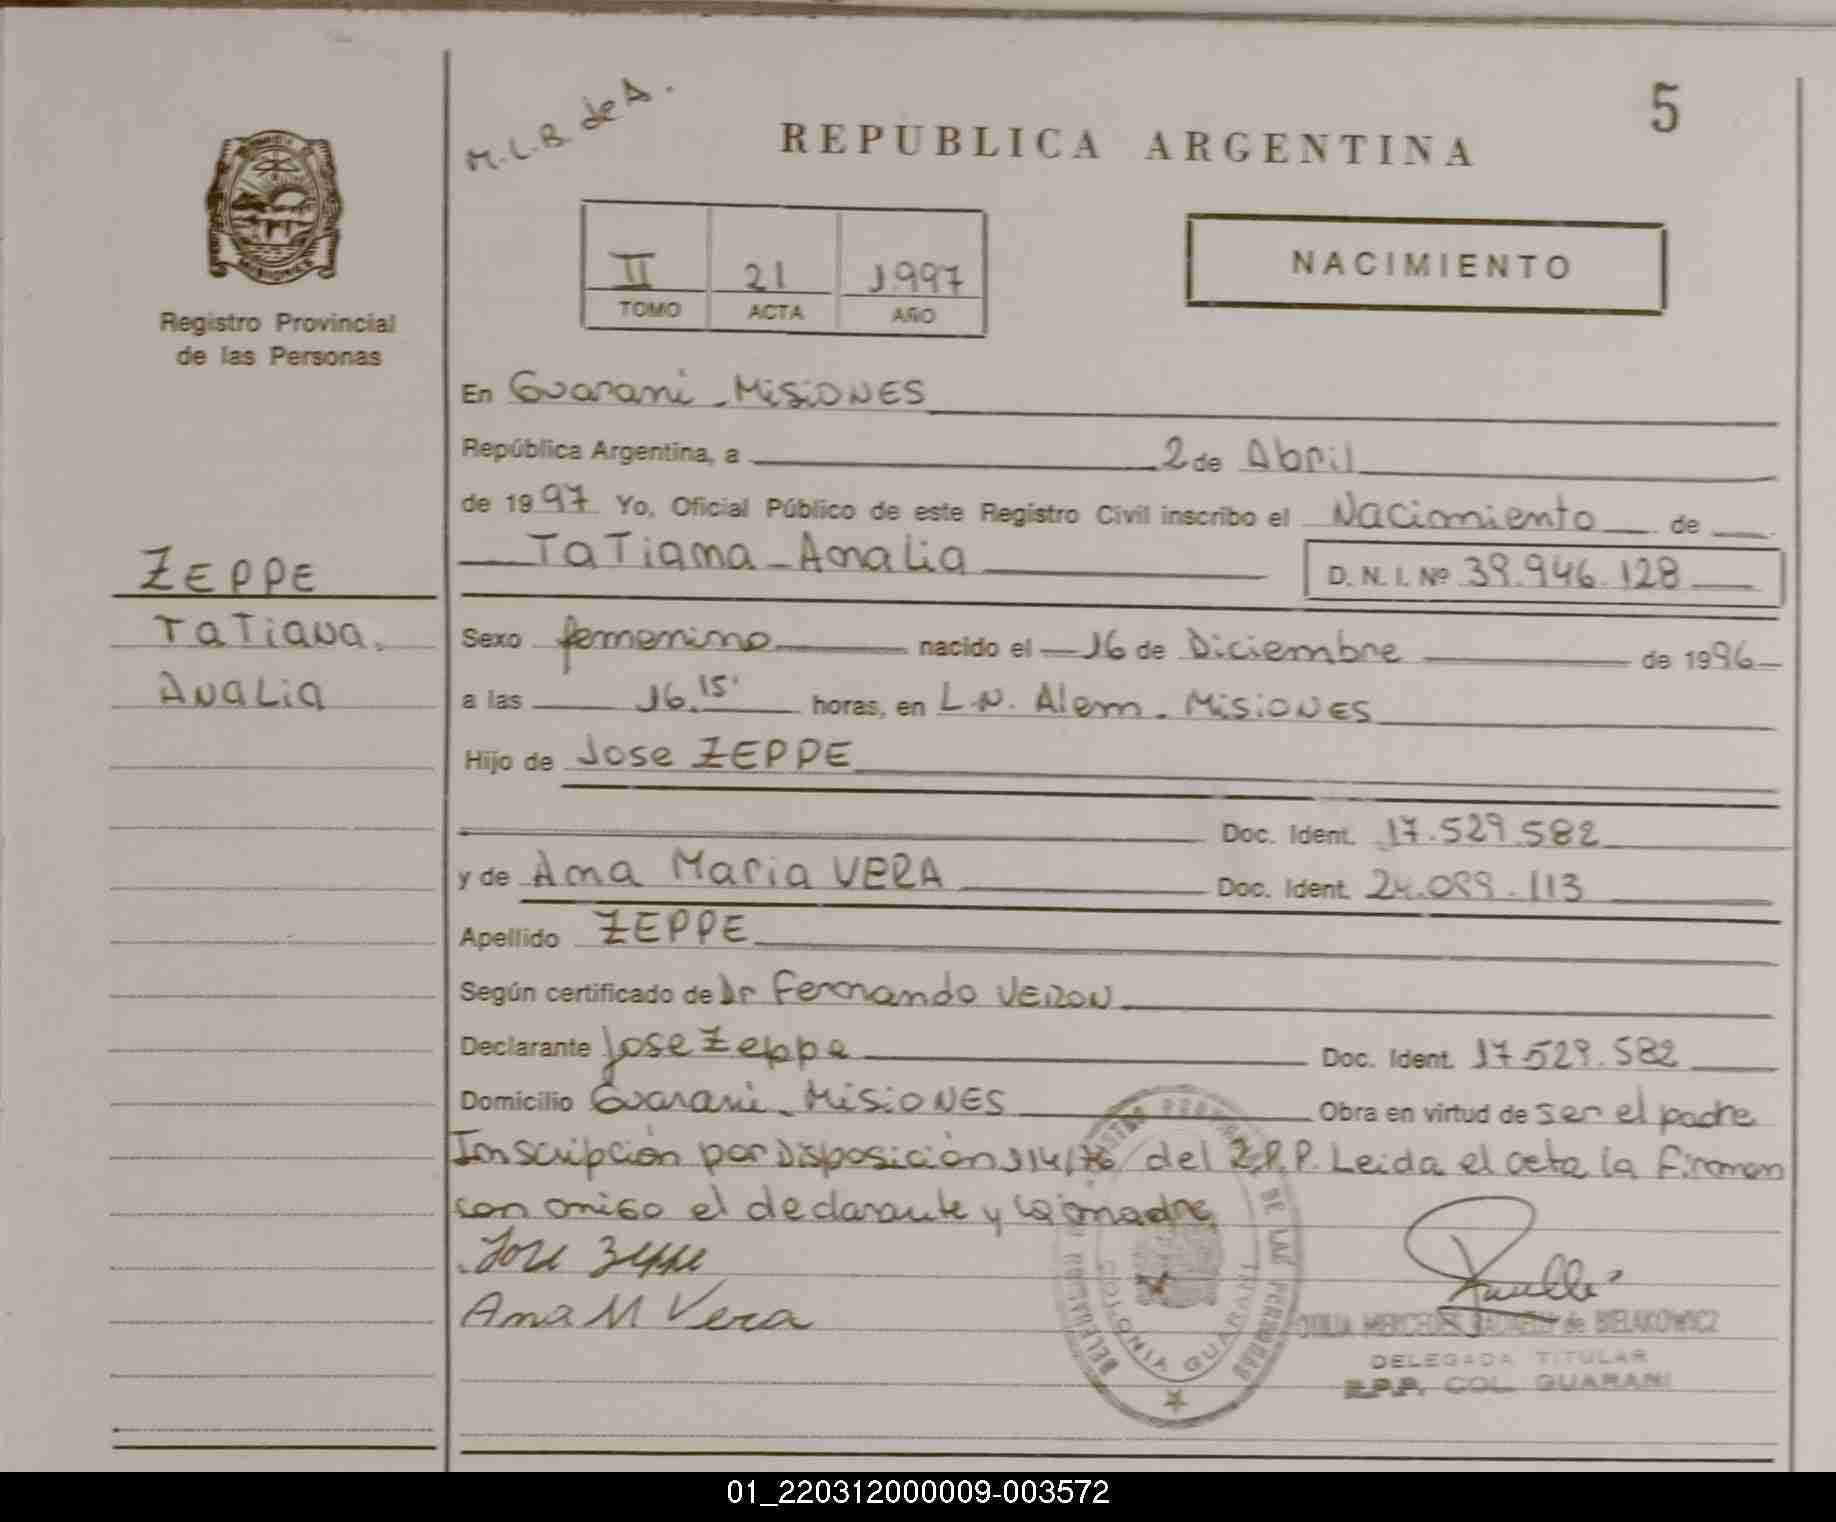 M.L.B. de A.
5
REPUBLICA ARGENTINA
MISIONES
Registro Provincial
de las Personas
II 21 1997
TOMO ACTA AÑO
NACIMIENTO
En Guarani - MisiONES
República Argentina, a 2 de Abril
de 1997 Yo, Oficial Público de este Registro Civil inscribo el Nacimiento de
TaTiana - Analia D.N.I. Nº 39.946.128
ZEPPE
TaTiana.
Analia
Sexo femenino nacido el 16 de Diciembre de 1996
a las 16.15' horas, en L.N. Alem - MisiONES
Hijo de Jose ZEPPE
Doc. Ident. 17.529.582
y de Ana Maria VERA Doc. Ident. 24.099.113
Apellido ZEPPE
Según certificado de Dr Fernando VERON
Declarante Jose Zeppe Doc. Ident. 17.529.582
Domicilio Guarani - MisiONES Obra en virtud de ser el padre
Inscripción por Disposición 314/76 del R.P.P. Leida el acta la firman
con migo el declarante y la madre
Jose Zeppe
Ana M Vera
DELEGACION COLONIA GUARANI
DE LAS PERSONAS
MERCEDES de BIELAKOWICZ
DELEGADA TITULAR
R.P.P. COL. GUARANI
01_220312000009-003572